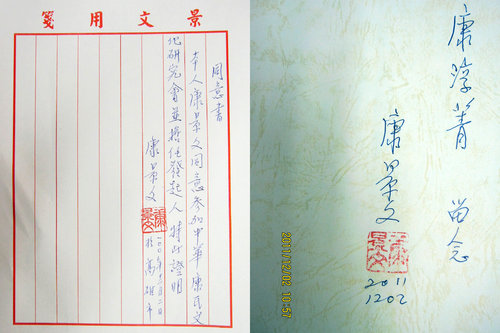 景文用箋
同意書
本人康景文同意參加中華康氏文
化研究會並擔任發起人特此證明
康景文
康景文
於高雄市
康淳菁 留念
康景文
康景文
2011
1202
2011/12/02 10:57